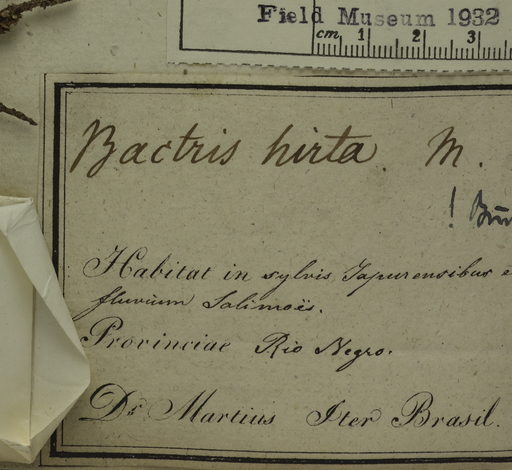 Field Museum 1932
cm 1 2 3
Bactris hirta. M.
!
Habitat in sylvis Japurensibus
fluvium Solimoës.
Provinciae Rio Negro.
Dr. Martius Iter Brasil.